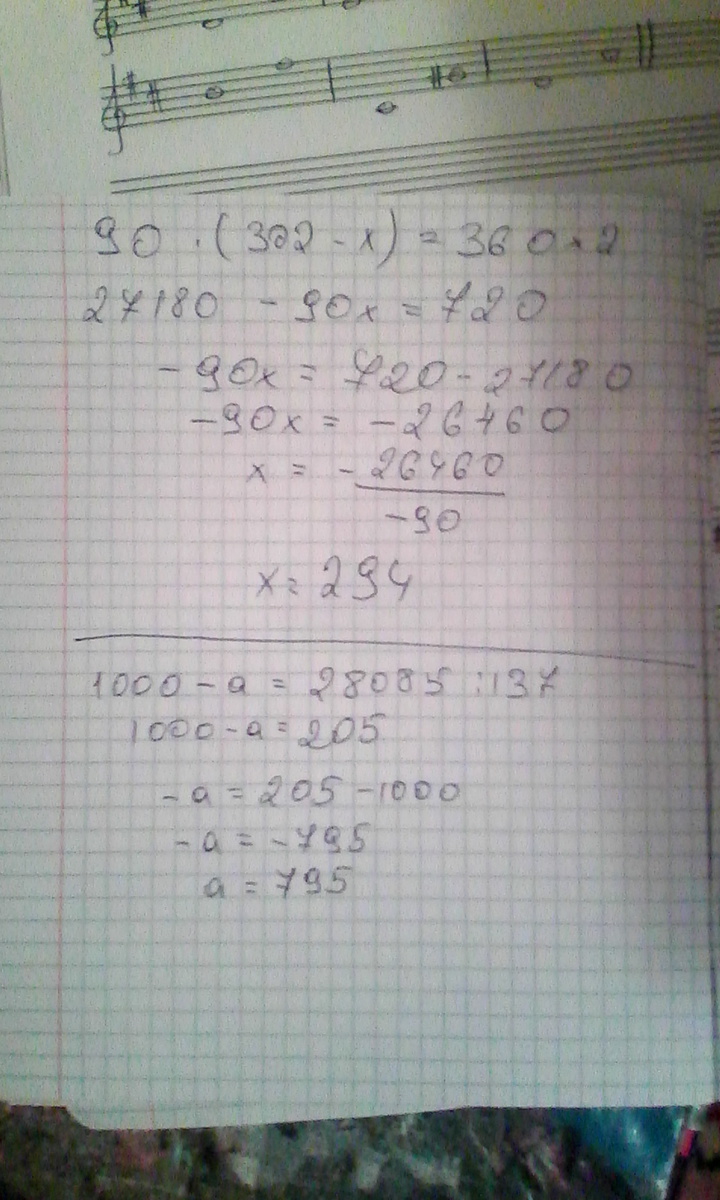 90 · (302 - x) = 360 · 2
27180 - 90x = 720
-90x = 720 - 27180
-90x = -26460
x = -26460
-90
x = 294
1000 - a = 28085 : 137
1000 - a = 205
-a = 205 - 1000
-a = -795
a = 795